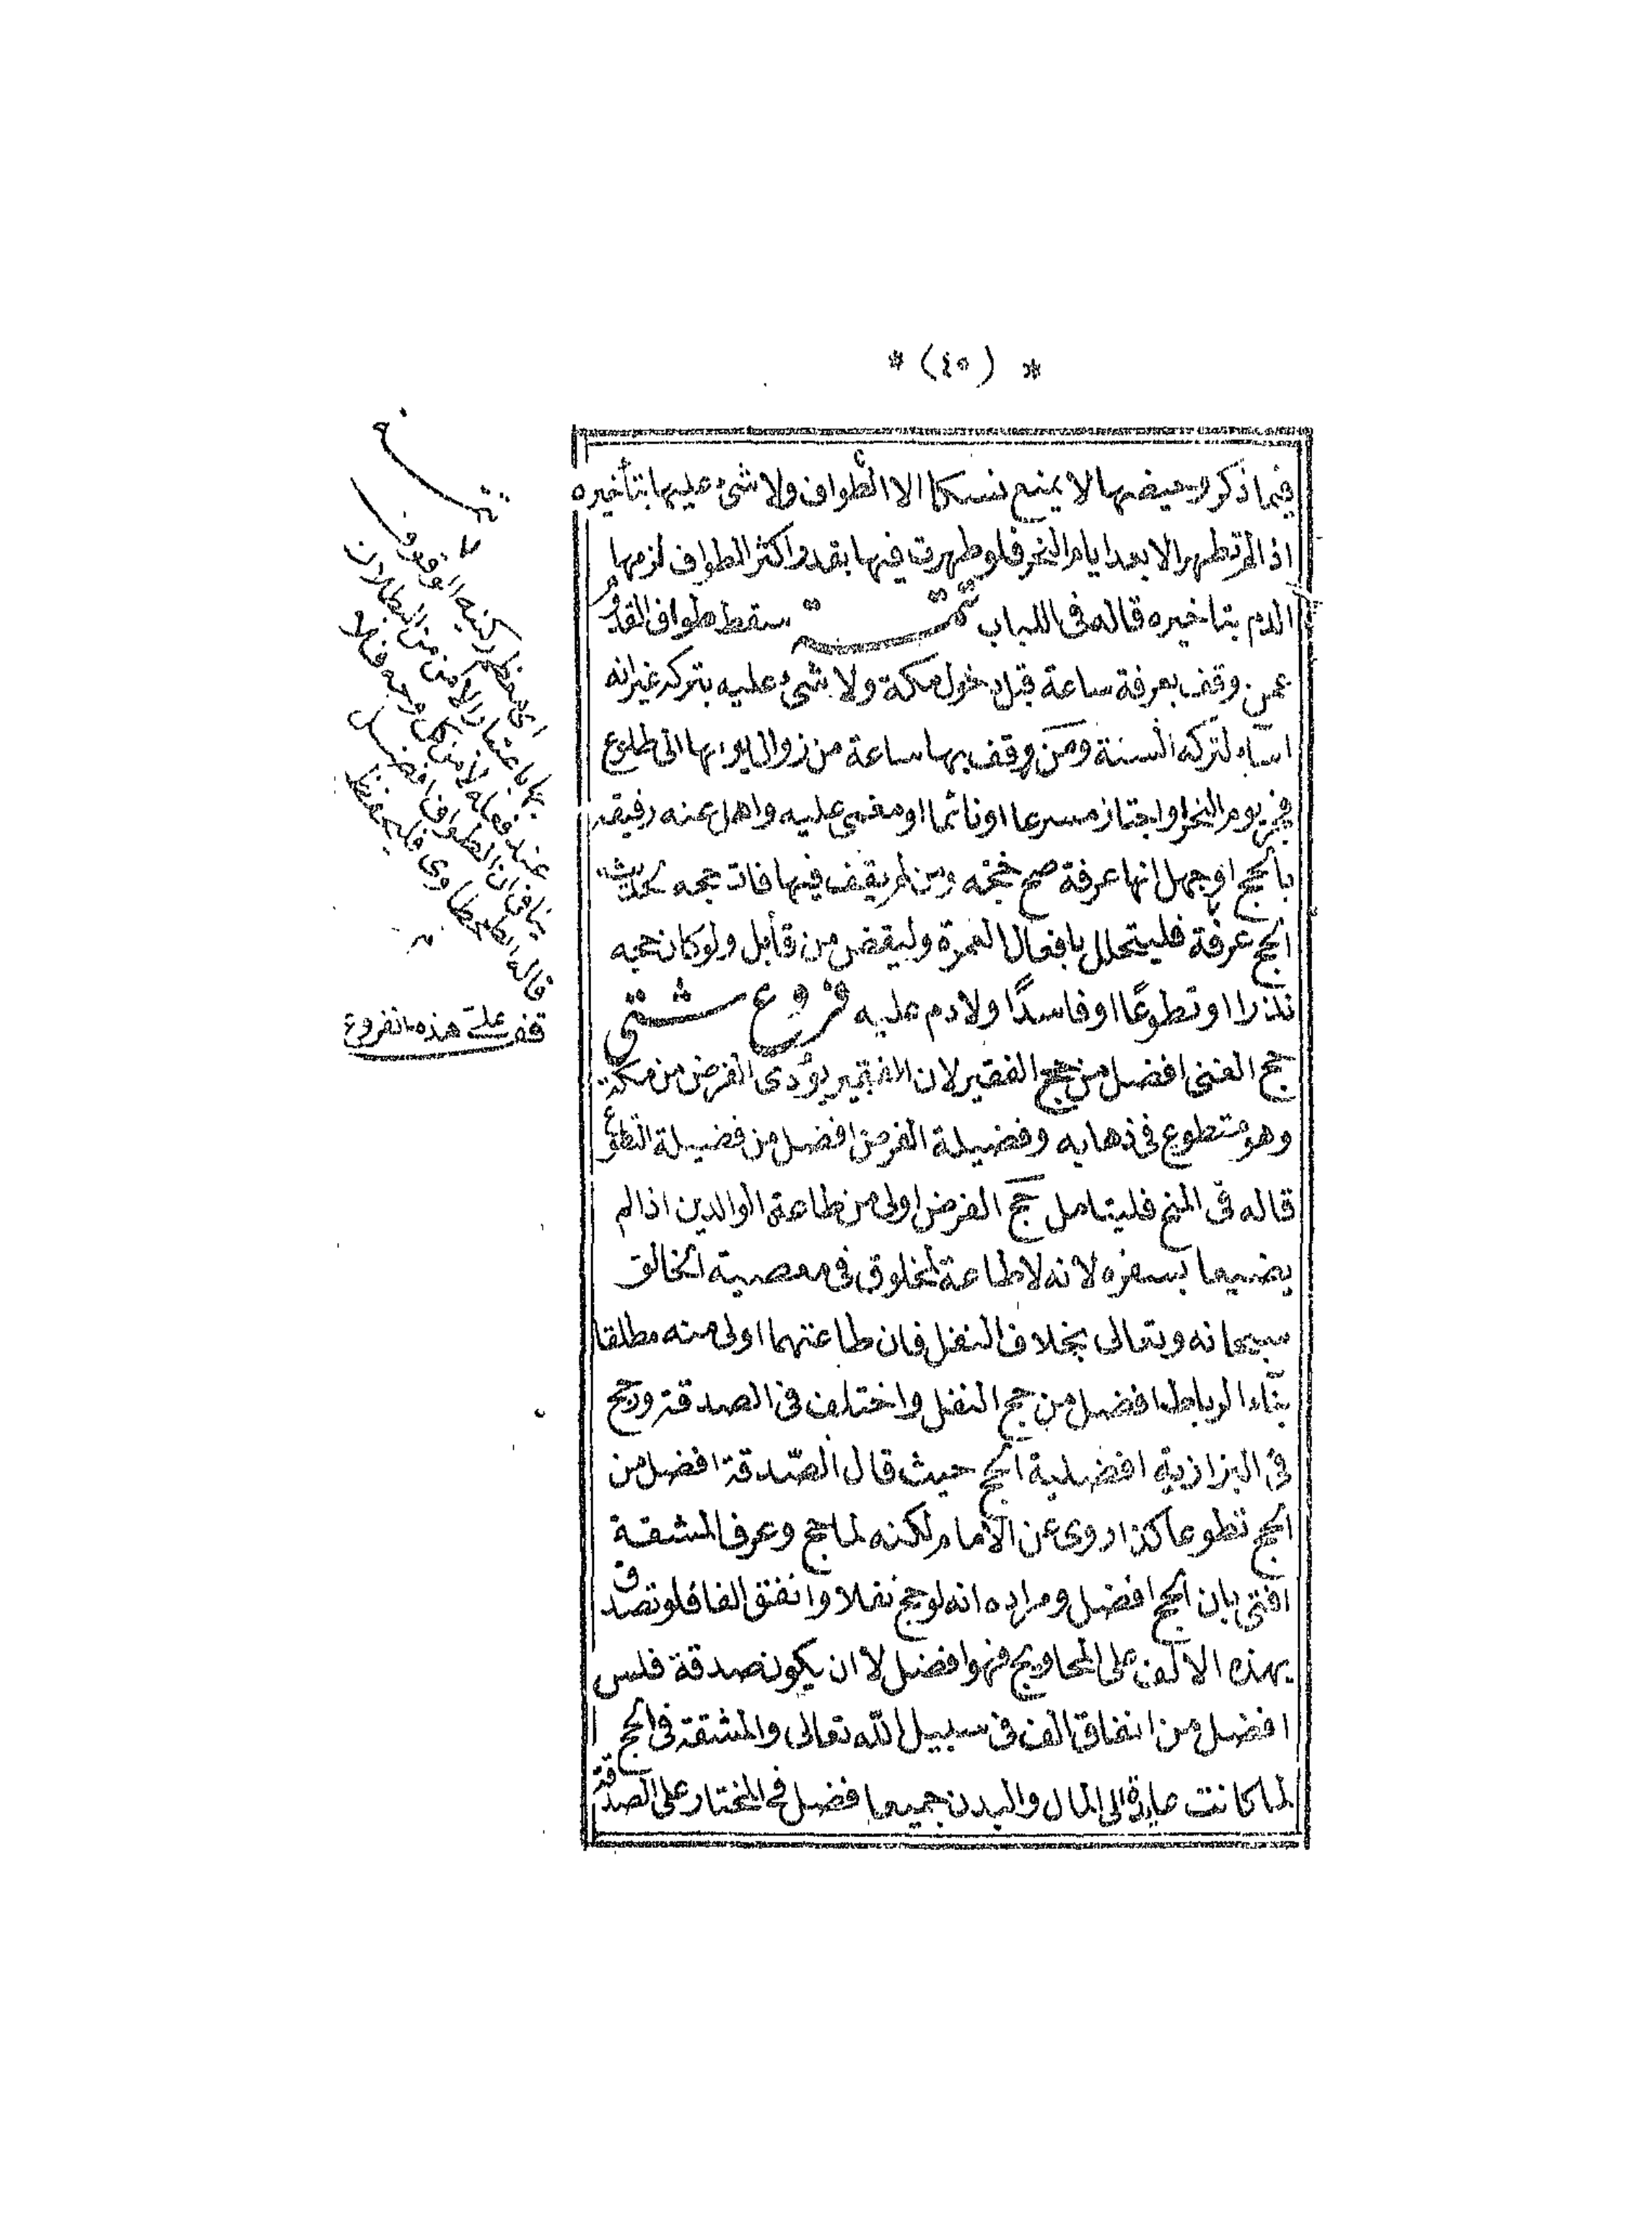 * (٤٥) *
فيما ذكر وحيضها لا يمنع نسكا الا الطواف ولا شئ عليها بتأخيره
اذا لم تطهر الا بعد ايام النحر فلو طهرت فيها بقدر اكثر الطواف لزمها
الدم بتاخيره قاله فى اللباب تتمـــة سقط طواف القدوم
عمن وقف بعرفة ساعة قبل دخول مكة ولا شئ عليه بتركه غير انه
اساء لتركه السنة ومن وقف بها ساعة من زوال يومها الى طلوع
فجر يوم النحر او اجتاز مسرعا او نائما او مغمى عليه واهل عنه رفيقه
بالحج او جهل انها عرفة صح حجه ومن لم يقف فيها فات حجه لحديث
الحج عرفة فليتحلل بافعال العمرة وليقض من قابل ولو كان حجه
نذرا او تطوعًا او فاسدًا ولا دم عليه فروع شـــتى
حج الغنى افضل من حج الفقير لان الفقير يؤدى الفرض من مكة
وهو متطوع فى ذهابه وفضيلة الفرض افضل من فضيلة التطوع
قاله فى المنح فليتامل حج الفرض اولى من طاعة الوالدين اذا لم
يضيعا بسفره لانه لا طاعة لمخلوق فى معصية الخالق
سبحانه وتعالى بخلاف النفل فان طاعتهما اولى منه مطلقا
بناء الرباط افضل من حج النفل واختلف فى الصدقة ورجح
فى البزازية افضلية الحج حيث قال الصّدقة افضل من
الحج تطوعا كذا روى عن الامام لكنه لما حج وعرف المشقة
افتى بان الحج افضل ومراده انه لو حج نفلا وانفق الفا فلو تصدق
بهذه الالف على المحاويج فهو افضل لا ان يكون صدقة فلس
افضل من انفاق الف فى سبيل الله تعالى والمشقة فى الحج
لما كانت عائدة الى المال والبدن جميعا فضل فى المختار على الصدقة
تتمـــة
لا
ركنية الوقوف
باعتبار الامن من البطلان
عند فعله لا من كل وجه فلا
ينافى ان الطواف افضــل
قاله الطحطاوى فليحفظ
م
قف على هذه الفروع